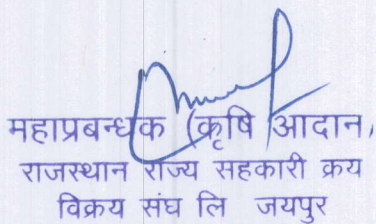 महाप्रबन्धक (कृषि आदान,
राजस्थान राज्य सहकारी क्रय
विक्रय संघ लि जयपुर